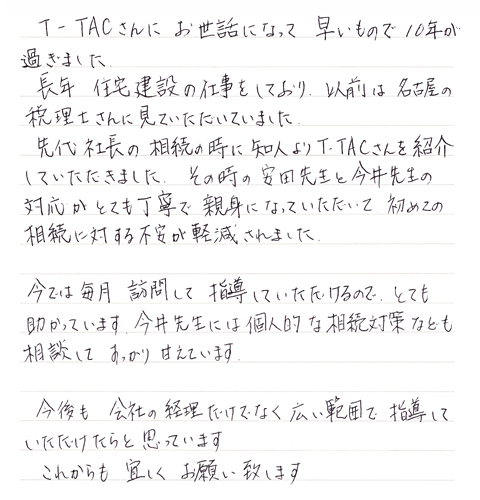 T-TACさんに お世話になって 早いもので 10年が
過ぎました.
長年 住宅建設の仕事をしており. 以前は 名古屋の
税理士さんに見ていただいていました.
先代社長の 相続の時に 知人よりT-TACさんを紹介
していただきました. その時の 安田先生と今井先生の
対応が とても丁寧で 親身になっていただいて 初めての
相続に対する不安が軽減されました.
今では毎月 訪問して 指導していただけるので. とても
助かっています. 今井先生には個人的な相続対策なども
相談して すっかり甘えています.
今後も 会社の経理だけでなく 広い範囲で 指導して
いただけたらと 思っています
これからも 宜しく お願い致します